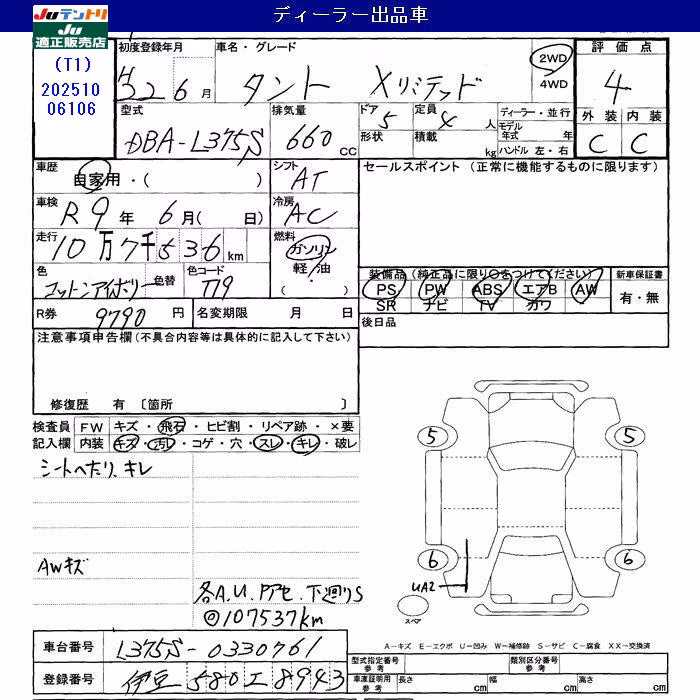 ディーラー出品車
JUテントリ
JU
適正販売店
(T1)
202510
06106
初度登録年月
H22 6月
車名・グレード
タント Xリミテッド
2WD
4WD
評価点
4
外装 内装
C C
型式
DBA-L375S
排気量
660 cc
ドア 5
形状
定員 4人
積載 kg
ディーラー・並行
モデル年式 年
ハンドル 左・右
車歴
自家用・( )
シフト
AT
セールスポイント (正常に機能するものに限ります)
車検
R9年 6月( 日)
冷房
AC
走行
10万7千536km
燃料
ガソリン
軽油
( ・ )
色
コットンアイボリー
色替
色コード
T19
装備品(純正品に限り○をつけてください)
PS PW ABS エアB AW
SR ナビ TV カワ
新車保証書
有・無
R券 9790円
名変期限 月 日
後日品
注意事項申告欄(不具合内容等は具体的に記入して下さい)
修復歴 有 〔箇所 〕
検査員記入欄
FW キズ・飛石・ヒビ割・リペア跡・×要
内装 キズ・汚レ・コゲ・穴・スレ・キレ・破レ
シートへたり、キレ
AWキズ
各A.U.アセ.下廻りS
◎107537km
5
5
6
6
UA2
スペア
A-キズ E-エクボ U-凹み W-補修跡 S-サビ C-腐食 XX-交換済
車台番号
L375S-0330761
登録番号
伊豆 580 エ 8943
型式指定番号
参考
類別区分番号
参考
車庫証明用
参考
長さ cm
幅 cm
高さ cm